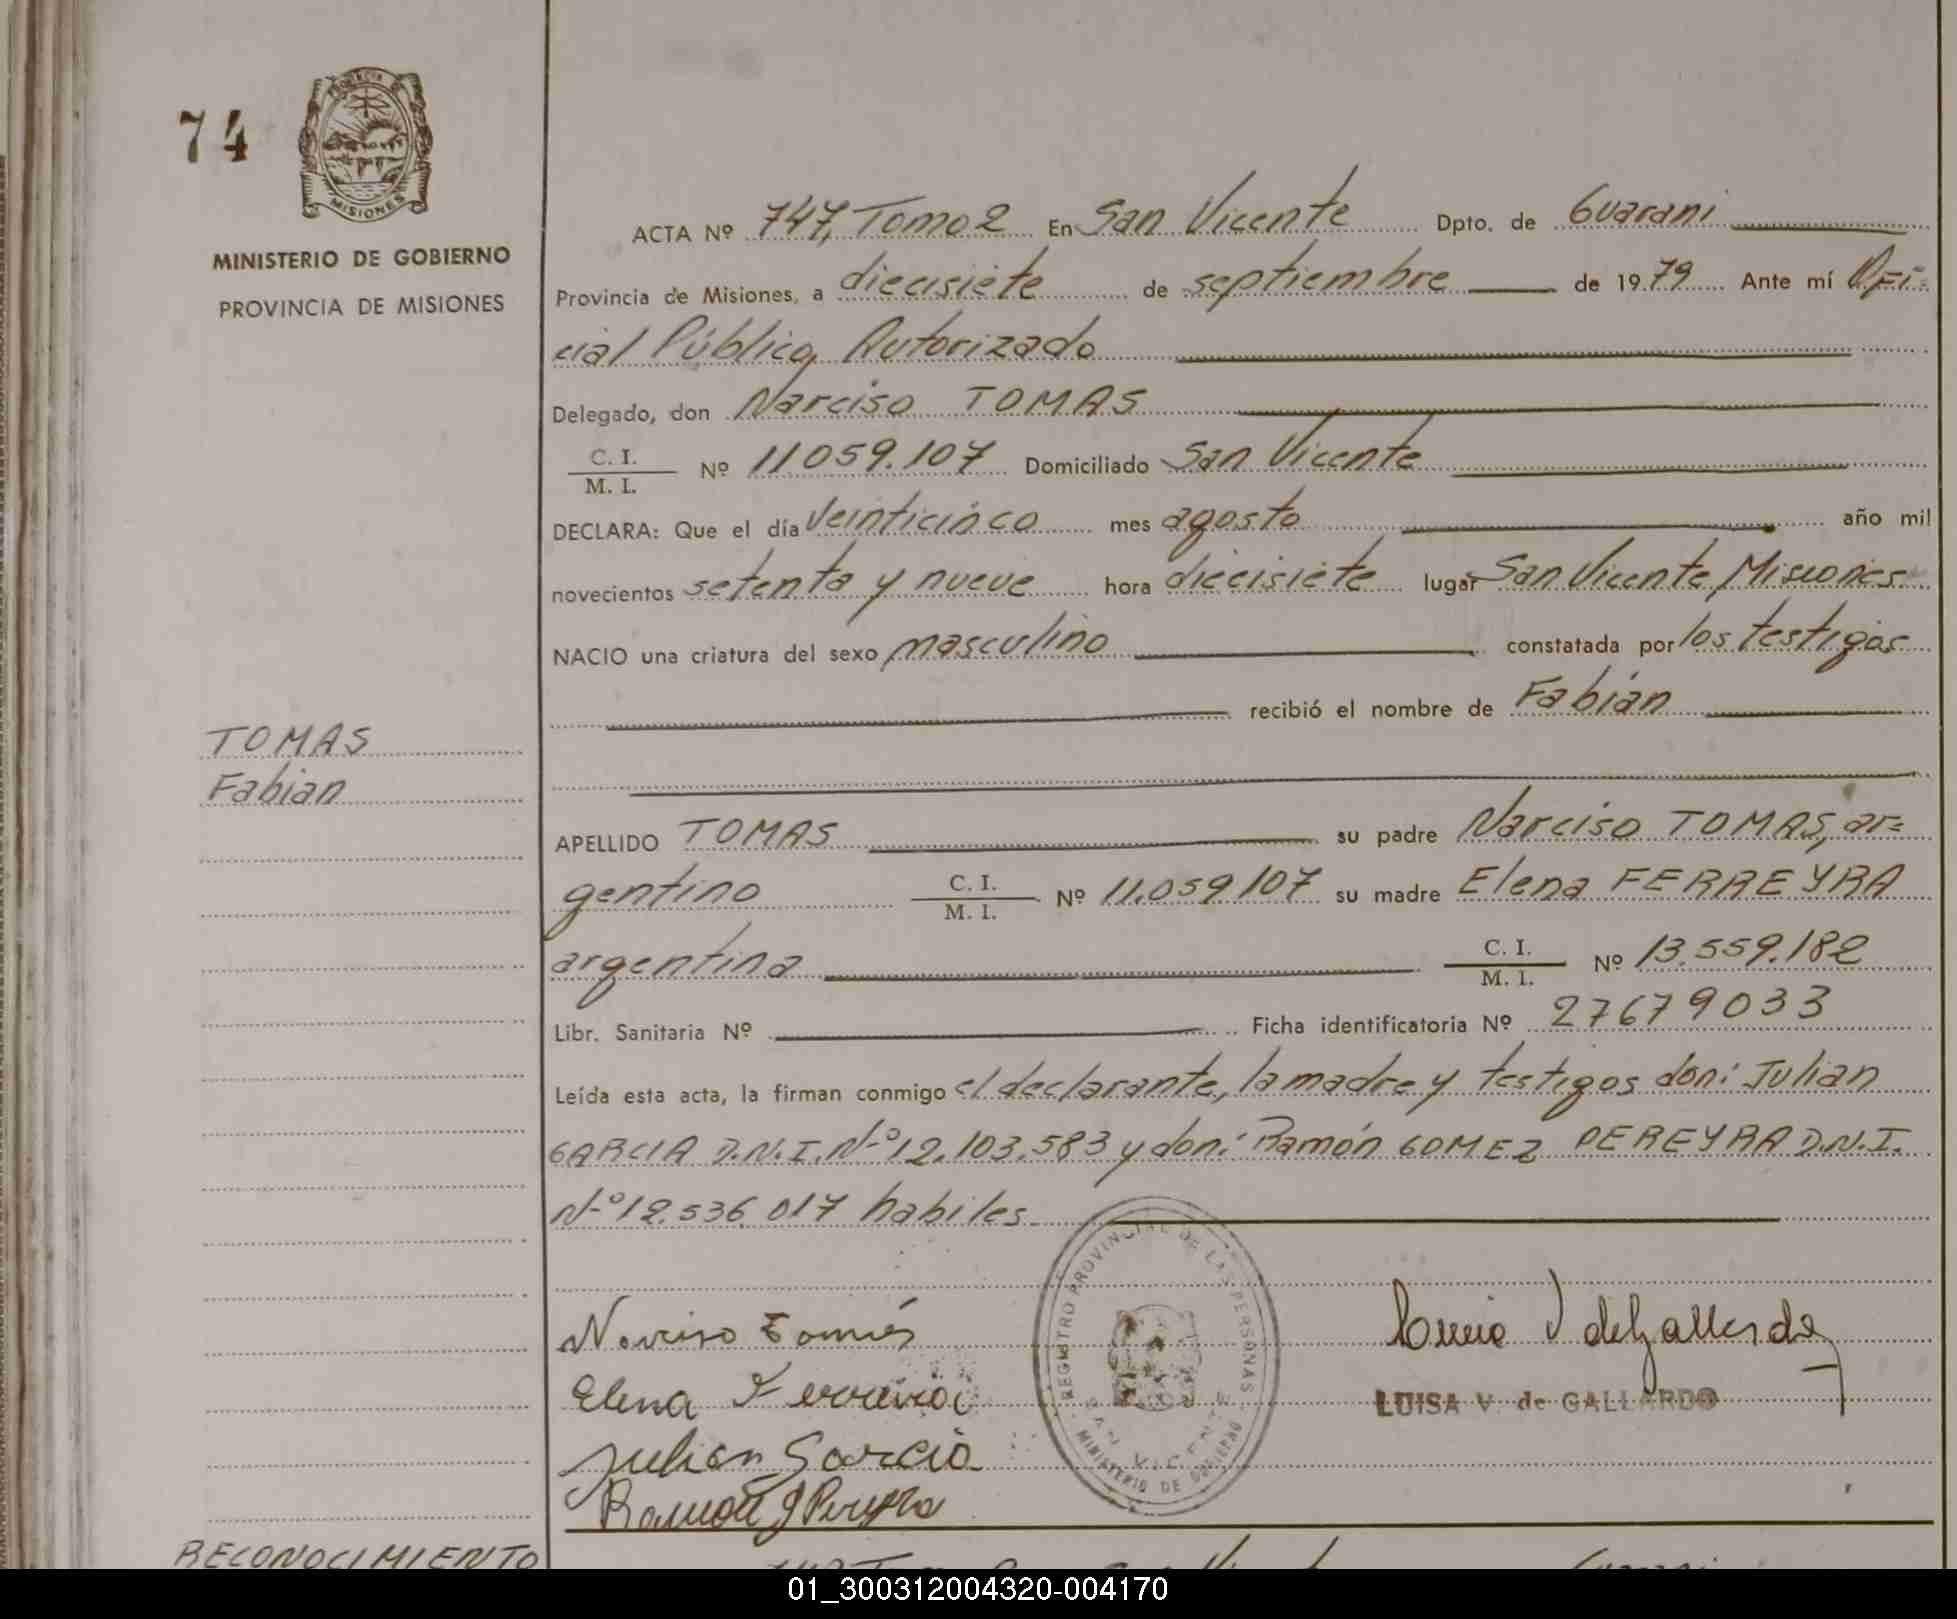 74
PROVINCIA DE
MISIONES
MINISTERIO DE GOBIERNO
PROVINCIA DE MISIONES
ACTA Nº 747, Tomo 2 En San Vicente Dpto. de Guarani
Provincia de Misiones, a diecisiete de septiembre de 1979 Ante mí Ofi-
cial Público Autorizado
Delegado, don Narciso TOMAS
C. I.
M. I.
Nº 11059.107 Domiciliado San Vicente
DECLARA: Que el día veinticinco mes agosto año mil
novecientos setenta y nueve hora diecisiete lugar San Vicente Misiones
NACIO una criatura del sexo masculino constatada por los testigos
recibió el nombre de Fabián
TOMAS
Fabian
APELLIDO TOMAS su padre Narciso TOMAS, ar=
gentino C. I. M. I. Nº 11.059107 su madre Elena FERREYRA
argentina C. I. M. I. Nº 13.559.182
Libr. Sanitaria Nº Ficha identificatoria Nº 27679033
Leída esta acta, la firman conmigo el declarante, la madre y testigos don: Julian
GARCIA D.N.I. Nº 12.103.583 y don: Ramón GOMEZ PEREYRA D.N.I.
Nº 12.536.017 habiles
REGISTRO PROVINCIAL DE LAS PERSONAS
SAN VICENTE
MINISTERIO DE GOBIERNO
Narciso Tomás
Elena Ferreira
Julian Garcia
Ramón G Pereyra
LUISA V. de GALLARDO
RECONOCIMIENTO
01_300312004320-004170